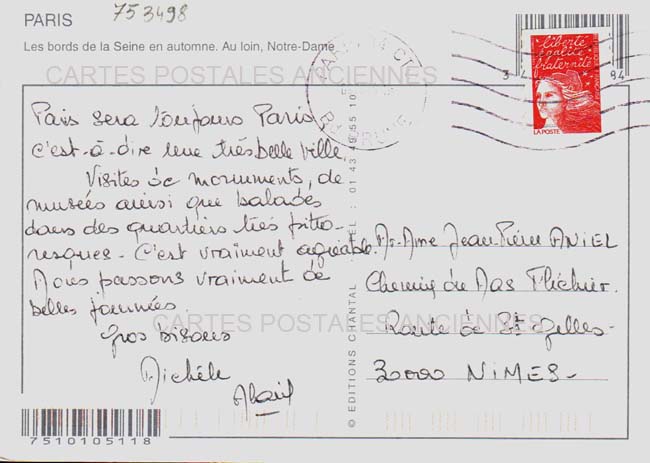 PARIS
753498
Les bords de la Seine en automne. Au loin, Notre-Dame
CARTES POSTALES ANCIENNES
Paris sera toujours Paris
c'est-à-dire une très belle ville.
Visites de monuments, de
musées ainsi que balades
dans des quartiers très pitto-
resques - C'est vraiment agréable.
Nous passons vraiment de
belles journées.
Gros bisous
Michèle
Alain
CARTES POSTALES ANCIENNES
© EDITIONS CHANTAL
TEL : 01 43 49 55 10
liberté
égalité
fraternité
LA POSTE
94
M. Mme Jean-Pierre ANIEL
Chemin du Mas Fléchier.
Route de St Gelles -
30000 NIMES -
7510105118